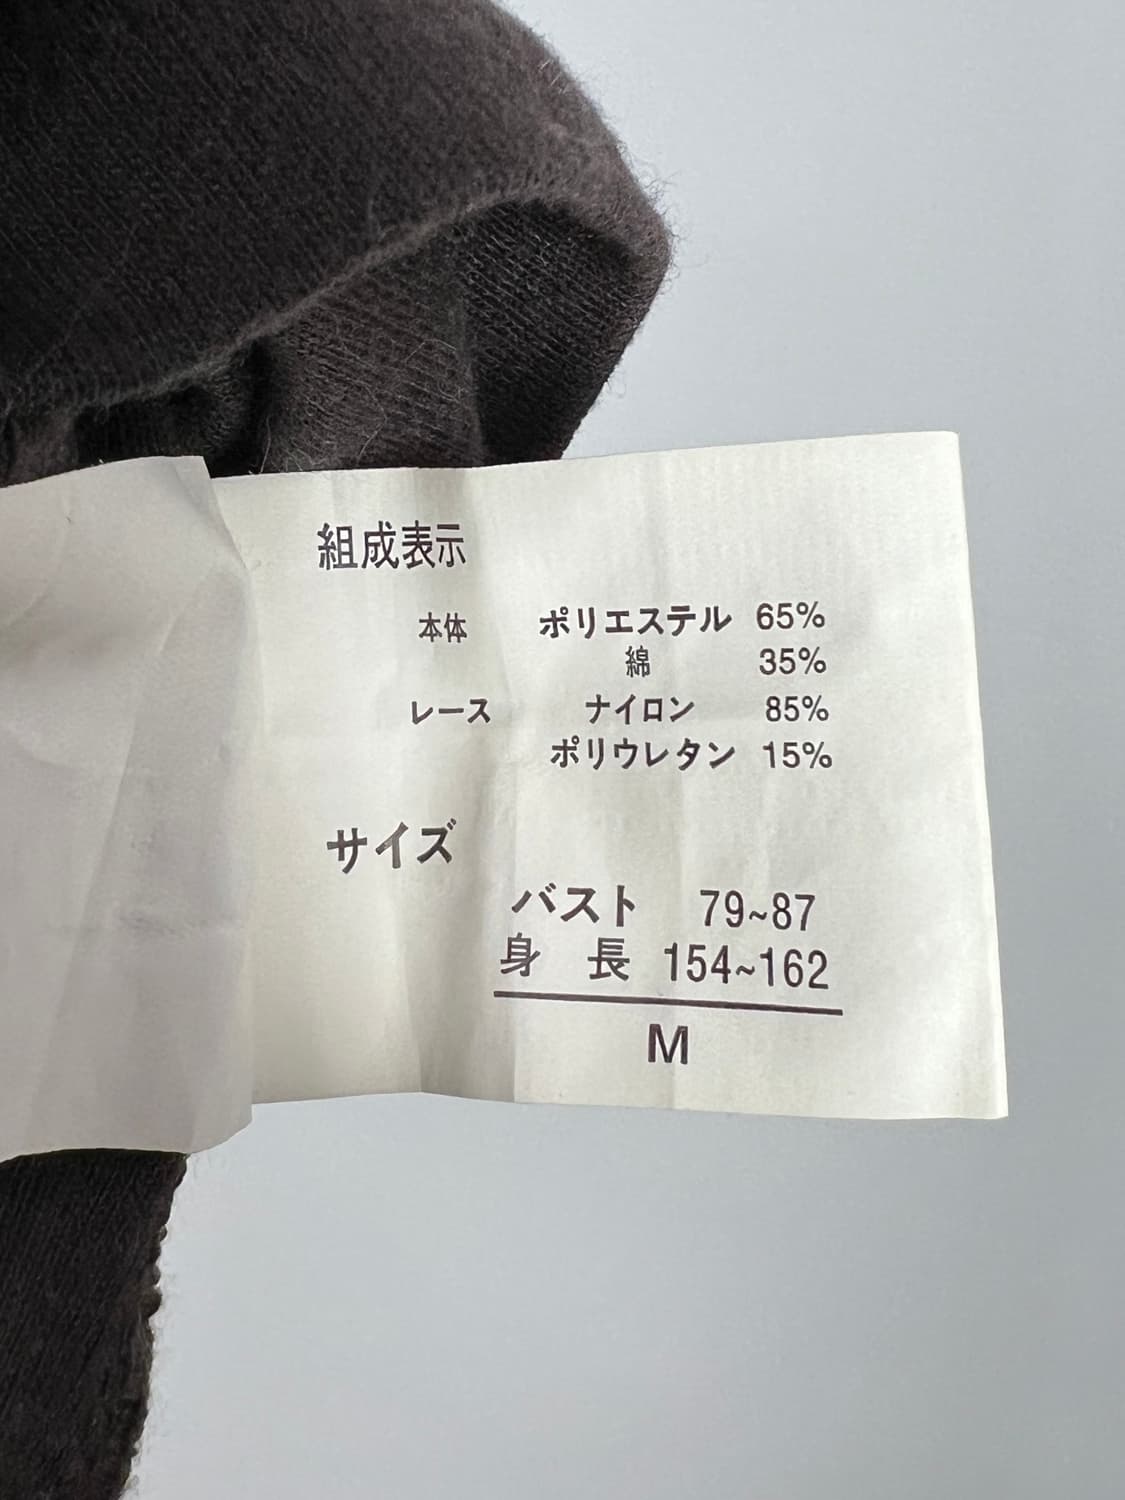 組成表示
本体 ポリエステル 65%
綿 35%
レース ナイロン 85%
ポリウレタン 15%
サイズ
バスト 79~87
身長 154~162
M